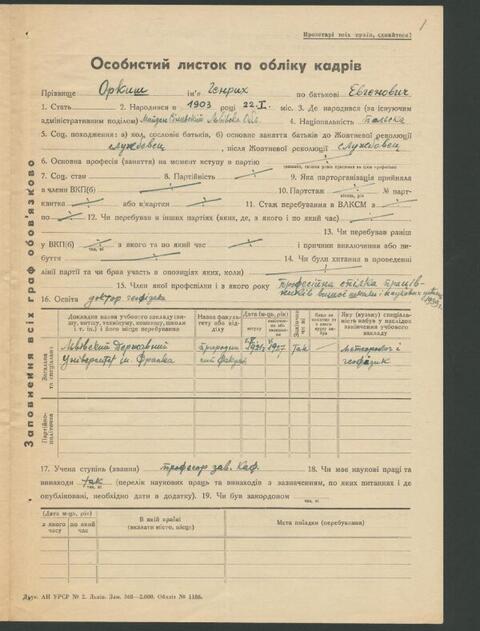 1
Пролетарі всіх країн, єднайтеся!
Особистий листок по обліку кадрів
Прізвище Оркиш ім'я Генрих по батькові Евгенович
1. Стать 2. Народився в 1903 році 22.I. міс. 3. Де народився (за існуючим
адміністративним поділом) Львівська обл. 4. Національність Полька
5. Соц. походження: а) кол. сословіє батьків, б) основне заняття батьків до Жовтневої революції
службовец, після Жовтневої революції службовец
6. Основна професія (заняття) на момент вступу в партію
7. Соц. стан 8. Партійність 9. Яка парторганізація прийняла
в члени ВКП(б) 10. Партстаж № парт-
квитка або к/картки 11. Стаж перебування в ВЛКСМ з
по 12. Чи перебував в інших партіях (яких, де, з якого і по який час)
13. Чи перебував раніш
у ВКП(б) з якого та по який час і причини виключення або ви-
буття 14. Чи були хитання в проведенні
лінії партії та чи брав участь в опозиціях яких, коли)
15. Член якої профспілки і з якого року Професійна спілка праців-
ників вищої школи і наукових
16. Освіта доктор геофізики 1939 р.
Заповнення всіх граф обов'язково
Загальна та спеціальна
Партійно-політична
Докладна назва учбового закладу (інституту, технікуму, комвузу, школи і т. п.) і його місце перебування
Назва факультету або відділу
Дата (м-ць, рік)
вступу
Закінчив чи ні
Яку (вузьку) спеціальність набув у наслідок закінчення учбового закладу
Львівский Державний природни 1921 1927 Так метеоролог і
Університет ім Франка чий факул. геофізик
17. Учена ступінь (звання) професор зав. Каф. 18. Чи має наукові праці та
винаходи так (перелік наукових праць та винаходів з зазначенням, по яких питаннях і де
так, ні
опубліковані, необхідно дати в додатку). 19. Чи був закордоном
так, ні
(Дата м-ць, рік)
з якого часу
по який час
В якій країні
(вказати місто, місце)
Мета поїздки (перебування)
Друк. АН УРСР № 2. Львів. Зам. 568—2.000. Обліт № 1186.